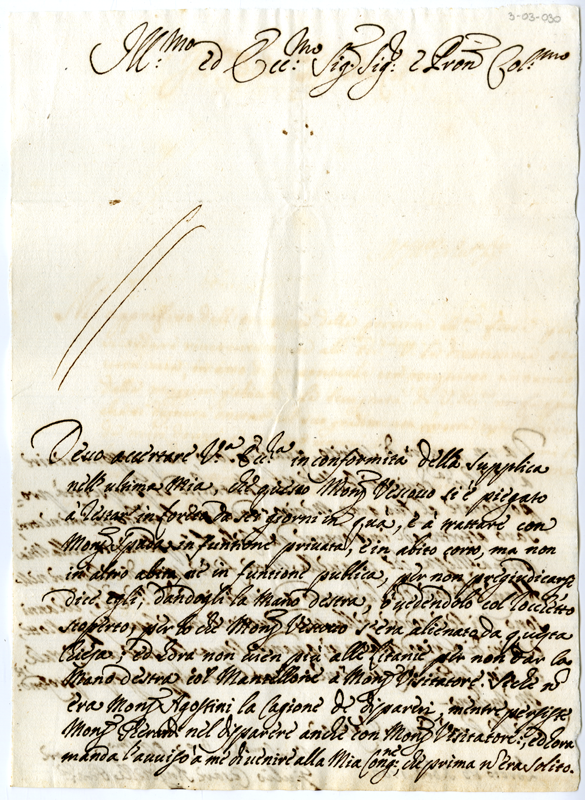 3-03-030
Ill.mo ed Ecc.mo Sig.r Sig.r e Pron Col.mo
Devo accertare V.a Ecc.a in conformità della supplica
nell'ultima Mia, che questo Mons.r Vescovo si è piegato
à restar in forca da sei giorni in quà, è à trattare con
Mons.r Spada in funtione privata, è in abito corto, ma non
in altro abito, nè in funtione publica, per non pregiudicarsi
dice egli, dandogli la mano destra, ò vedendolo col rocchetto
scoperto, per lo che Mons.r Vescovo s'era alienato da questa
Chiesa, ed hora non vien più alle Litanie per non dar la
Mano destra col Mantellone à Mons.r Visitatore. Si che n'
era Mons.r Agostini la cagione de dispareri, mentre persiste
Mons.r nel disparere anche con Mons.r Visitatore, ed hora
manda l'avviso à me di venire alla Mia Cong.ne, che prima n'era solito.